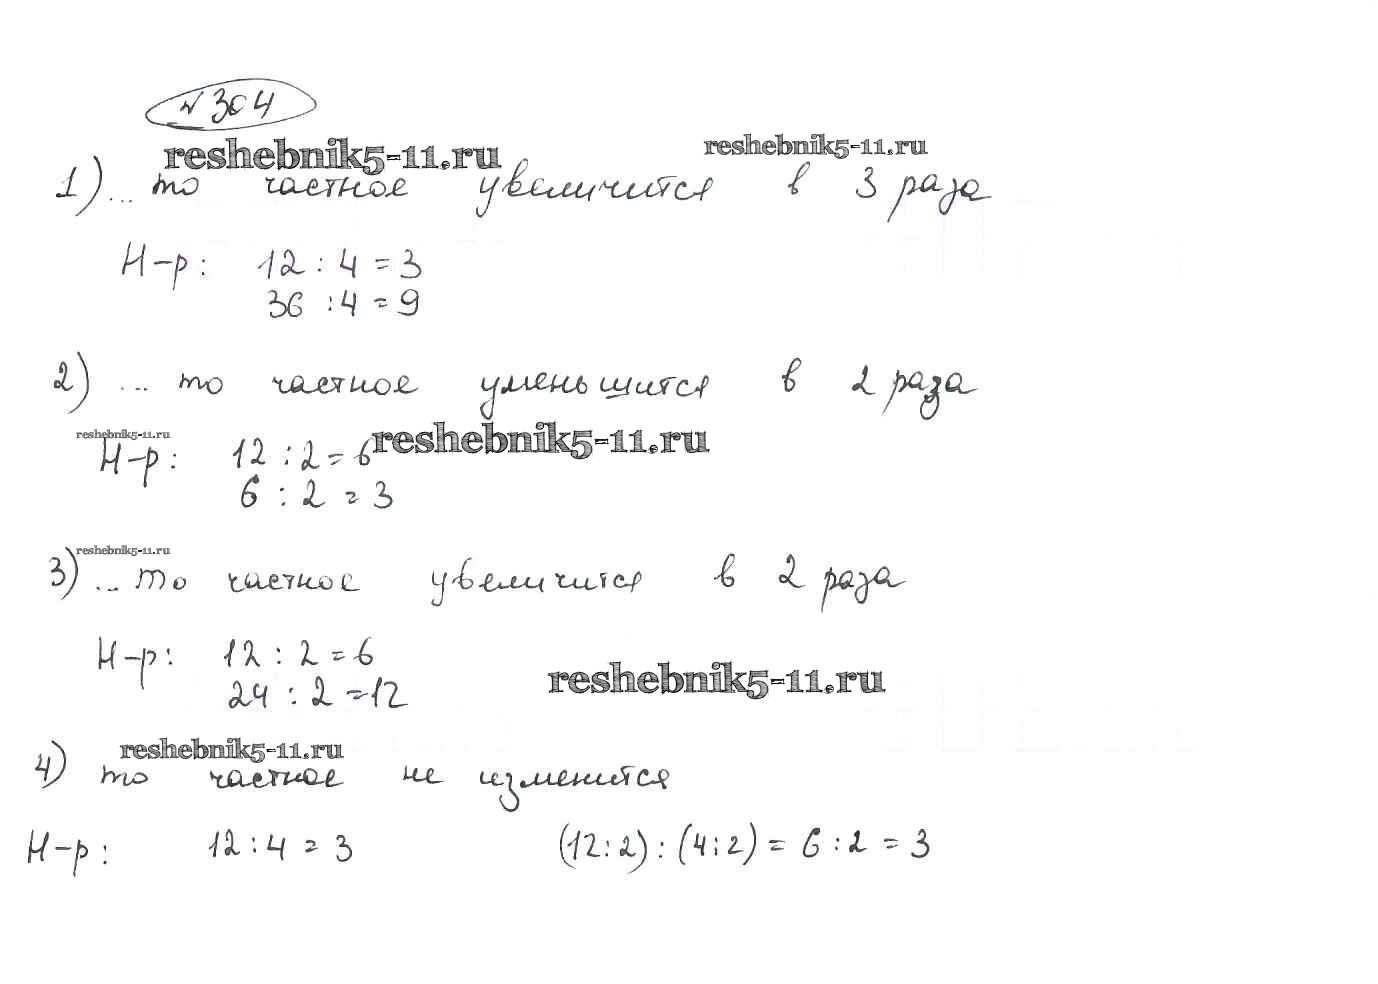 № 304
reshebnik5-11.ru
reshebnik5-11.ru
1) ... то частное увеличится в 3 раза
Н-р: 12 : 4 = 3
36 : 4 = 9
2) ... то частное уменьшится в 2 раза
reshebnik5-11.ru
reshebnik5-11.ru
Н-р: 12 : 2 = 6
6 : 2 = 3
reshebnik5-11.ru
3) ... то частное увеличится в 2 раза
Н-р: 12 : 2 = 6
reshebnik5-11.ru
24 : 2 = 12
reshebnik5-11.ru
4) то частное не изменится
Н-р: 12 : 4 = 3 (12:2) : (4:2) = 6 : 2 = 3